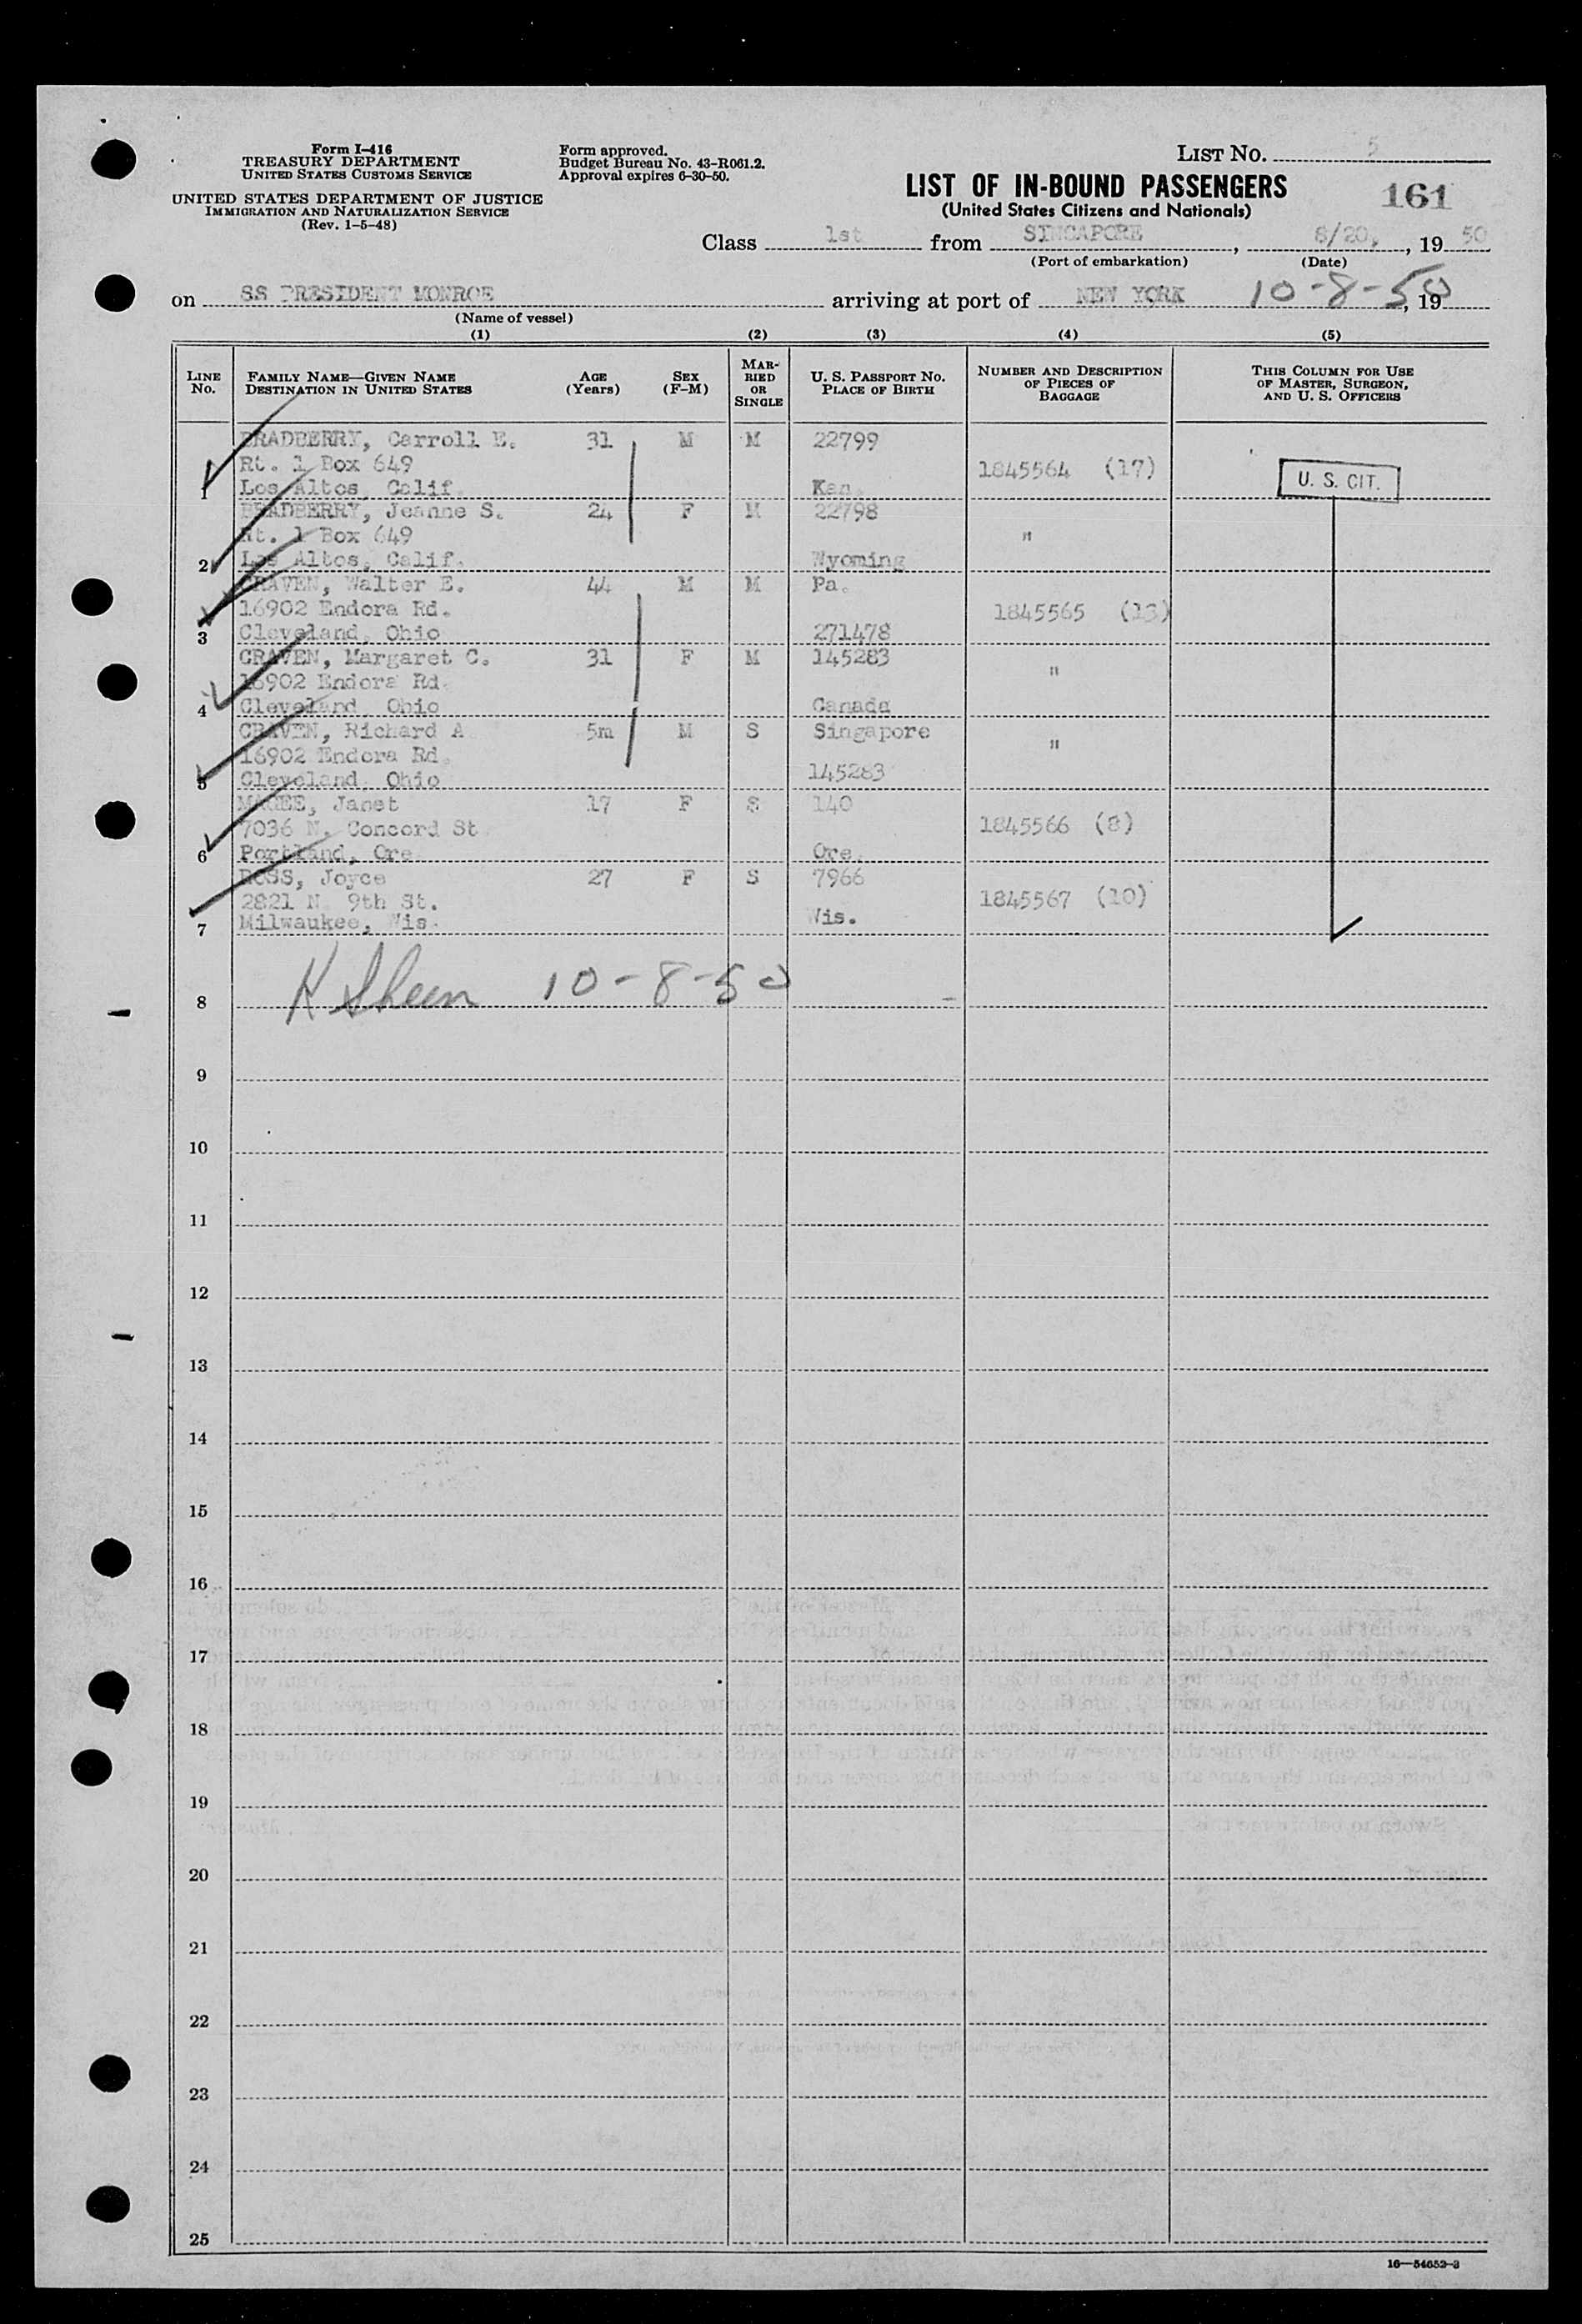 Form I-416
TREASURY DEPARTMENT
UNITED STATES CUSTOMS SERVICE
UNITED STATES DEPARTMENT OF JUSTICE
IMMIGRATION AND NATURALIZATION SERVICE
(Rev. 1-5-48)
Form approved.
Budget Bureau No. 43-R061.2.
Approval expires 6-30-50.
LIST NO. 5
LIST OF IN-BOUND PASSENGERS
161
(United States Citizens and Nationals)
Class 1st from SINGAPORE, 8/20, , 19 50
(Port of embarkation) (Date)
on SS PRESIDENT MONROE arriving at port of NEW YORK 10-8-50, 19
(Name of vessel)
(1) (2) (3) (4) (5)
LINE No. FAMILY NAME—GIVEN NAME DESTINATION IN UNITED STATES AGE (Years) SEX (F-M) MARRIED OR SINGLE U. S. PASSPORT NO. PLACE OF BIRTH NUMBER AND DESCRIPTION OF PIECES OF BAGGAGE THIS COLUMN FOR USE OF MASTER, SURGEON, AND U. S. OFFICERS
BRADBERRY, Carroll E. 31 M M 22799
Rt. 1 Box 649 1845564 (17) U. S. CIT.
1 Los Altos, Calif. Kan.
BRADBERRY, Jeanne S. 24 F M 22798
Rt. 1 Box 649 "
2 Los Altos, Calif. Wyoming
CRAVEN, Walter E. 44 M M Pa.
16902 Endora Rd. 1845565 (13)
3 Cleveland, Ohio 271478
CRAVEN, Margaret C. 31 F M 145283
16902 Endora Rd. "
4 Cleveland, Ohio Canada
CRAVEN, Richard A 5m M S Singapore
16902 Endora Rd. "
5 Cleveland, Ohio 145283
MAGEE, Janet 17 F S 140
7036 N. Concord St 1845566 (8)
6 Portland, Ore. Ore.
ROSS, Joyce 27 F S 7966
2821 N. 9th St. 1845567 (10)
7 Milwaukee, Wis. Wis.
8 K Sheen 10-8-50
9
10
11
12
13
14
15
16
17
18
19
20
21
22
23
24
25
16—54652-3